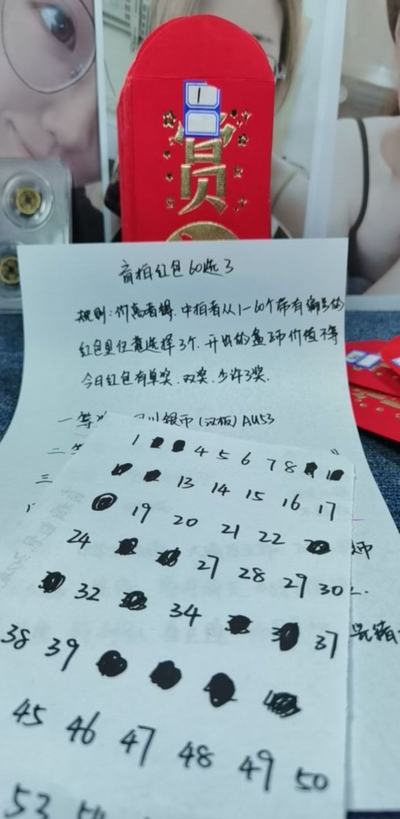 1
贺
盲拍红包60选3
规则:价高者得.中拍者从1-60个带有编号的
红包里任意选择3个.开出的盒币价值不等
今日红包有单奖.双奖.少许3奖.
一等
川银币(汉板)AU53
二
三
1 4 5 6 7 8
13 14 15 16 17
19 20 21 22
24 27 28 29 30
32 34 37
38 39
45 46 47 48 49 50
53 54